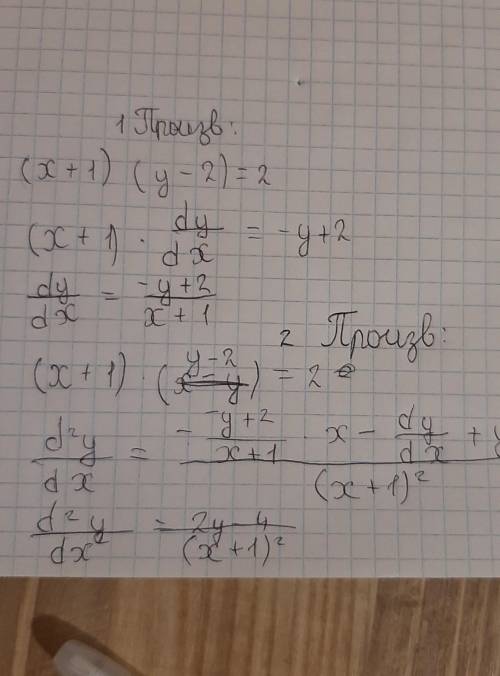 1 Произв:
(x + 1) (y - 2) = 2
(x + 1) · dy/dx = -y + 2
dy/dx = (-y + 2)/(x + 1)
2 Произв:
(x + 1) · (y - 2) = 2
d²y/dx = (- (-y + 2)/(x + 1) · x - dy/dx + y)/(x + 1)²
d²y/dx² = (2y - 4)/(x + 1)²